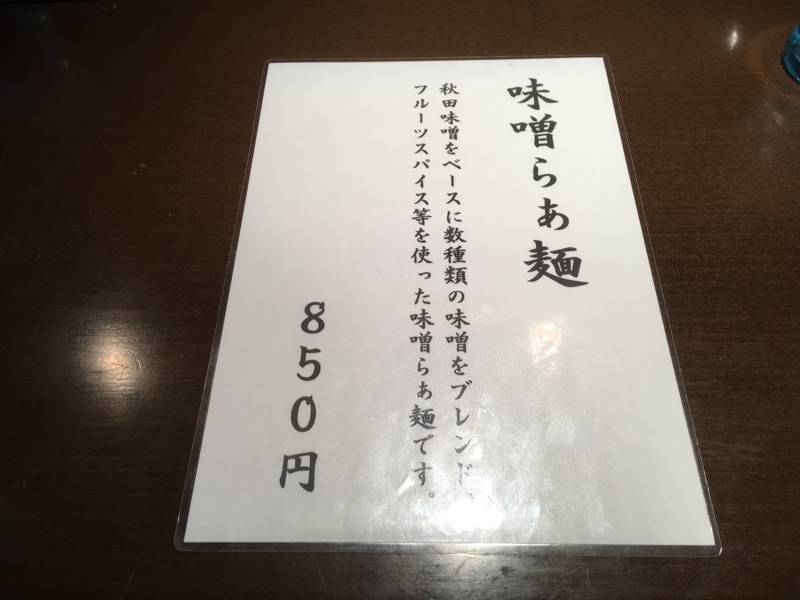 味噌らぁ麺
秋田味噌をベースに数種類の味噌をブレンド、
フルーツスパイス等を使った味噌らぁ麺です。
850円